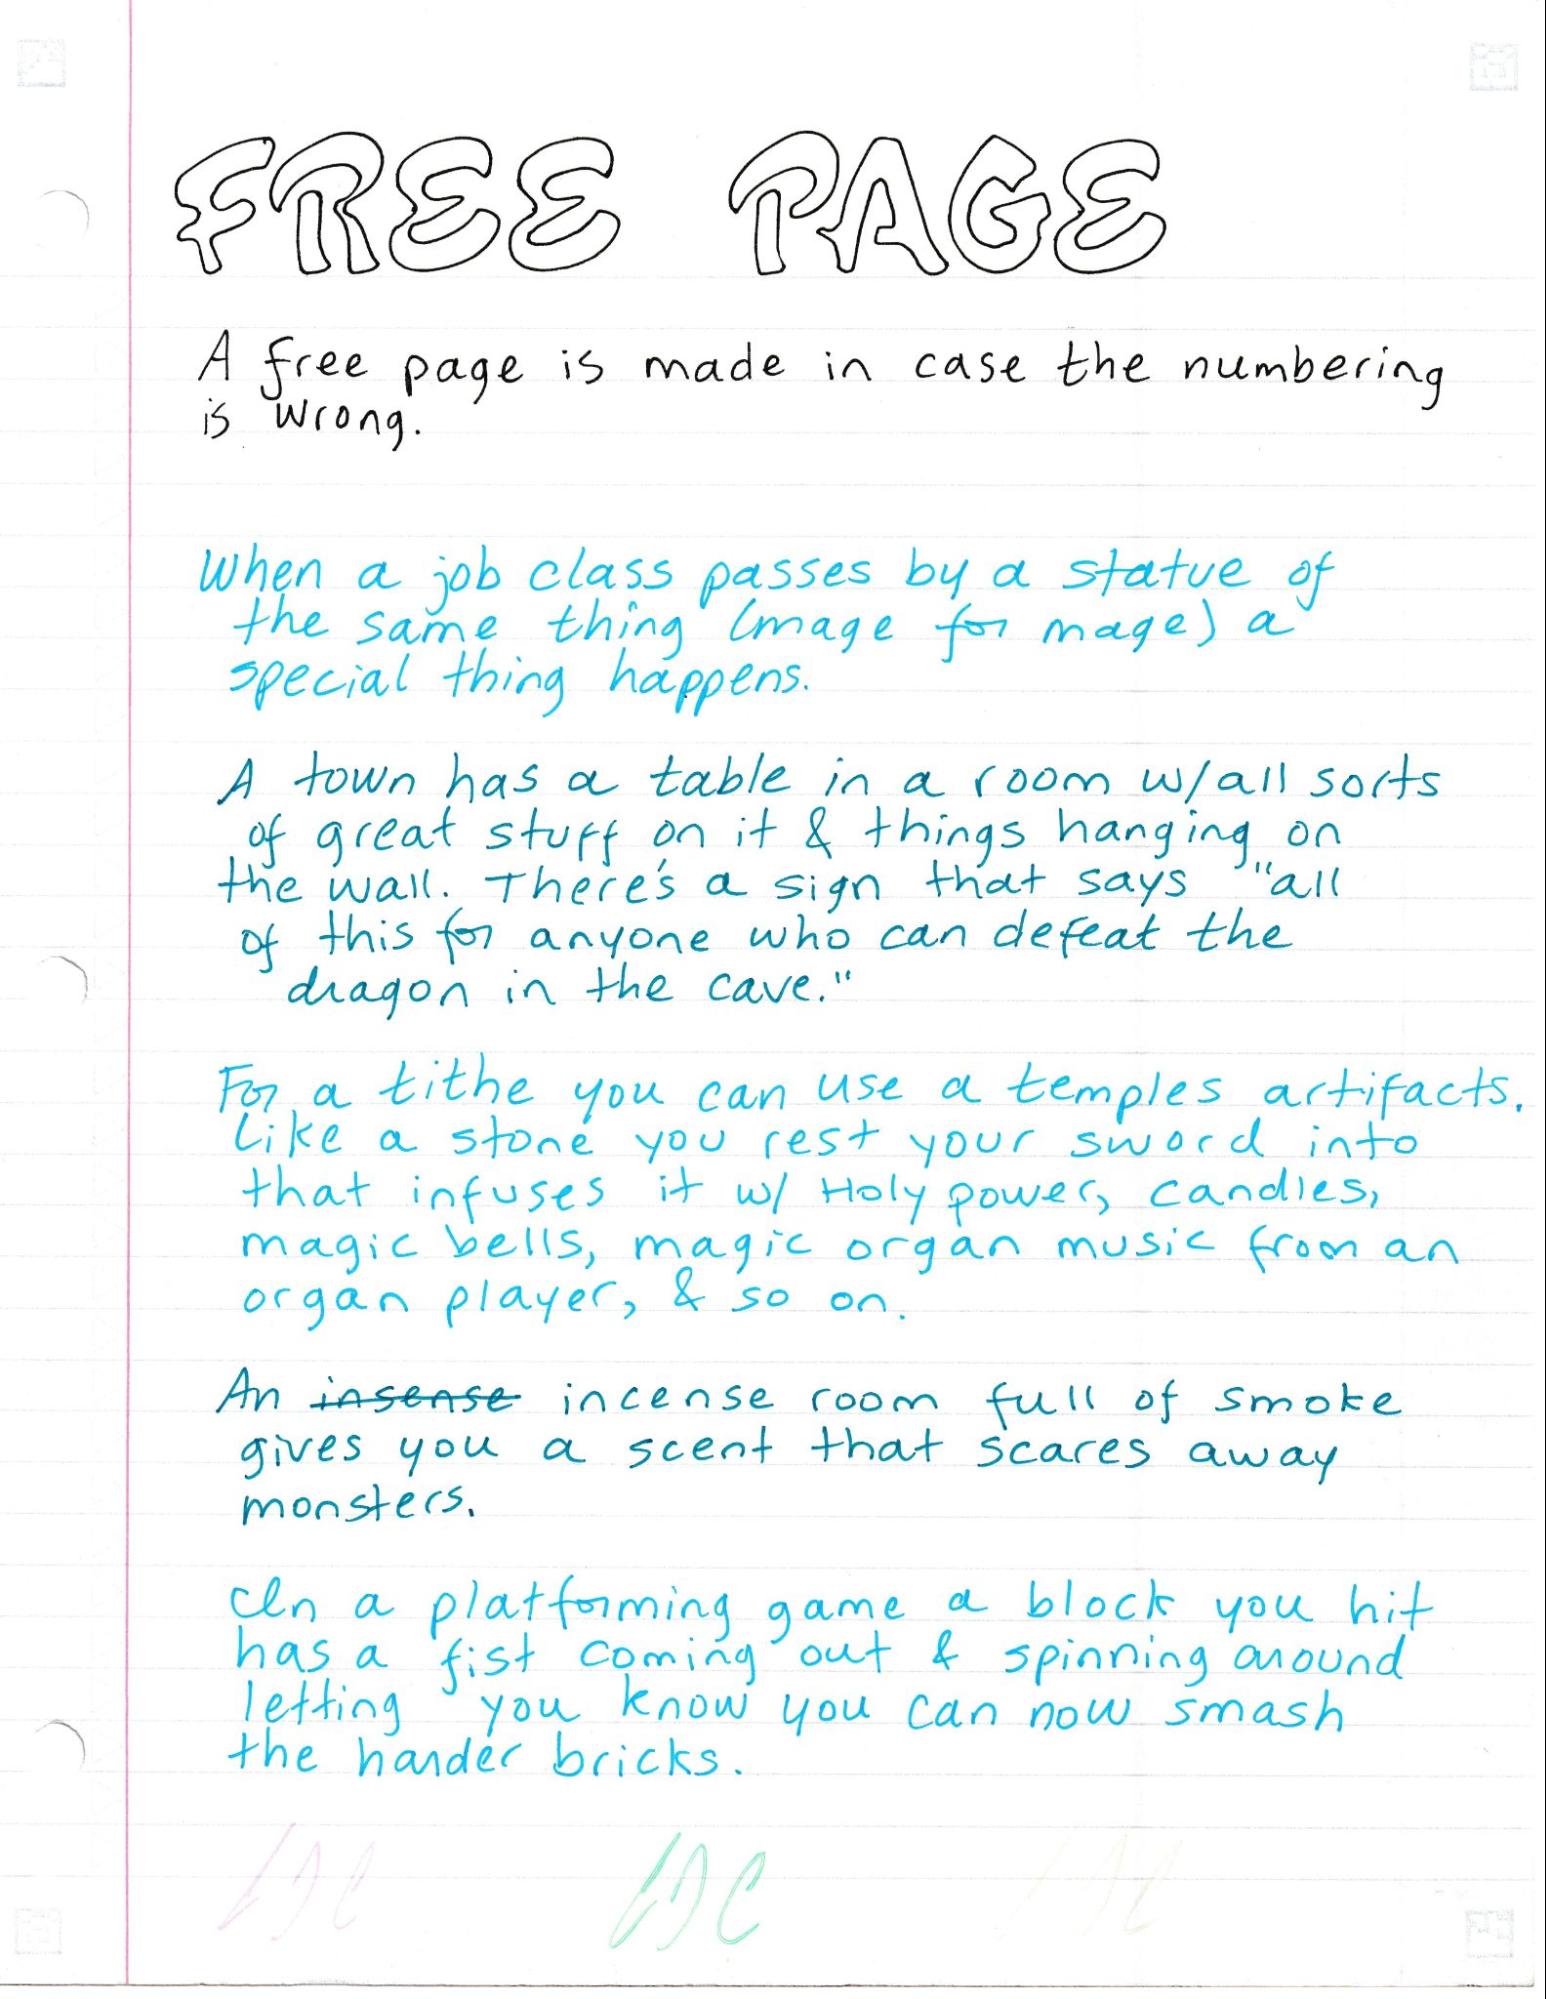 FREE PAGE
A free page is made in case the numbering
is wrong.
When a job class passes by a statue of
the same thing (mage for mage) a
special thing happens.
A town has a table in a room w/all sorts
of great stuff on it & things hanging on
the wall. There's a sign that says "all
of this for anyone who can defeat the
dragon in the cave."
For a tithe you can use a temples artifacts.
Like a stone you rest your sword into
that infuses it w/ Holy power, candles,
magic bells, magic organ music from an
organ player, & so on.
An insense incense room full of smoke
gives you a scent that scares away
monsters.
In a platforming game a block you hit
has a fist coming out & spinning around
letting you know you can now smash
the harder bricks.